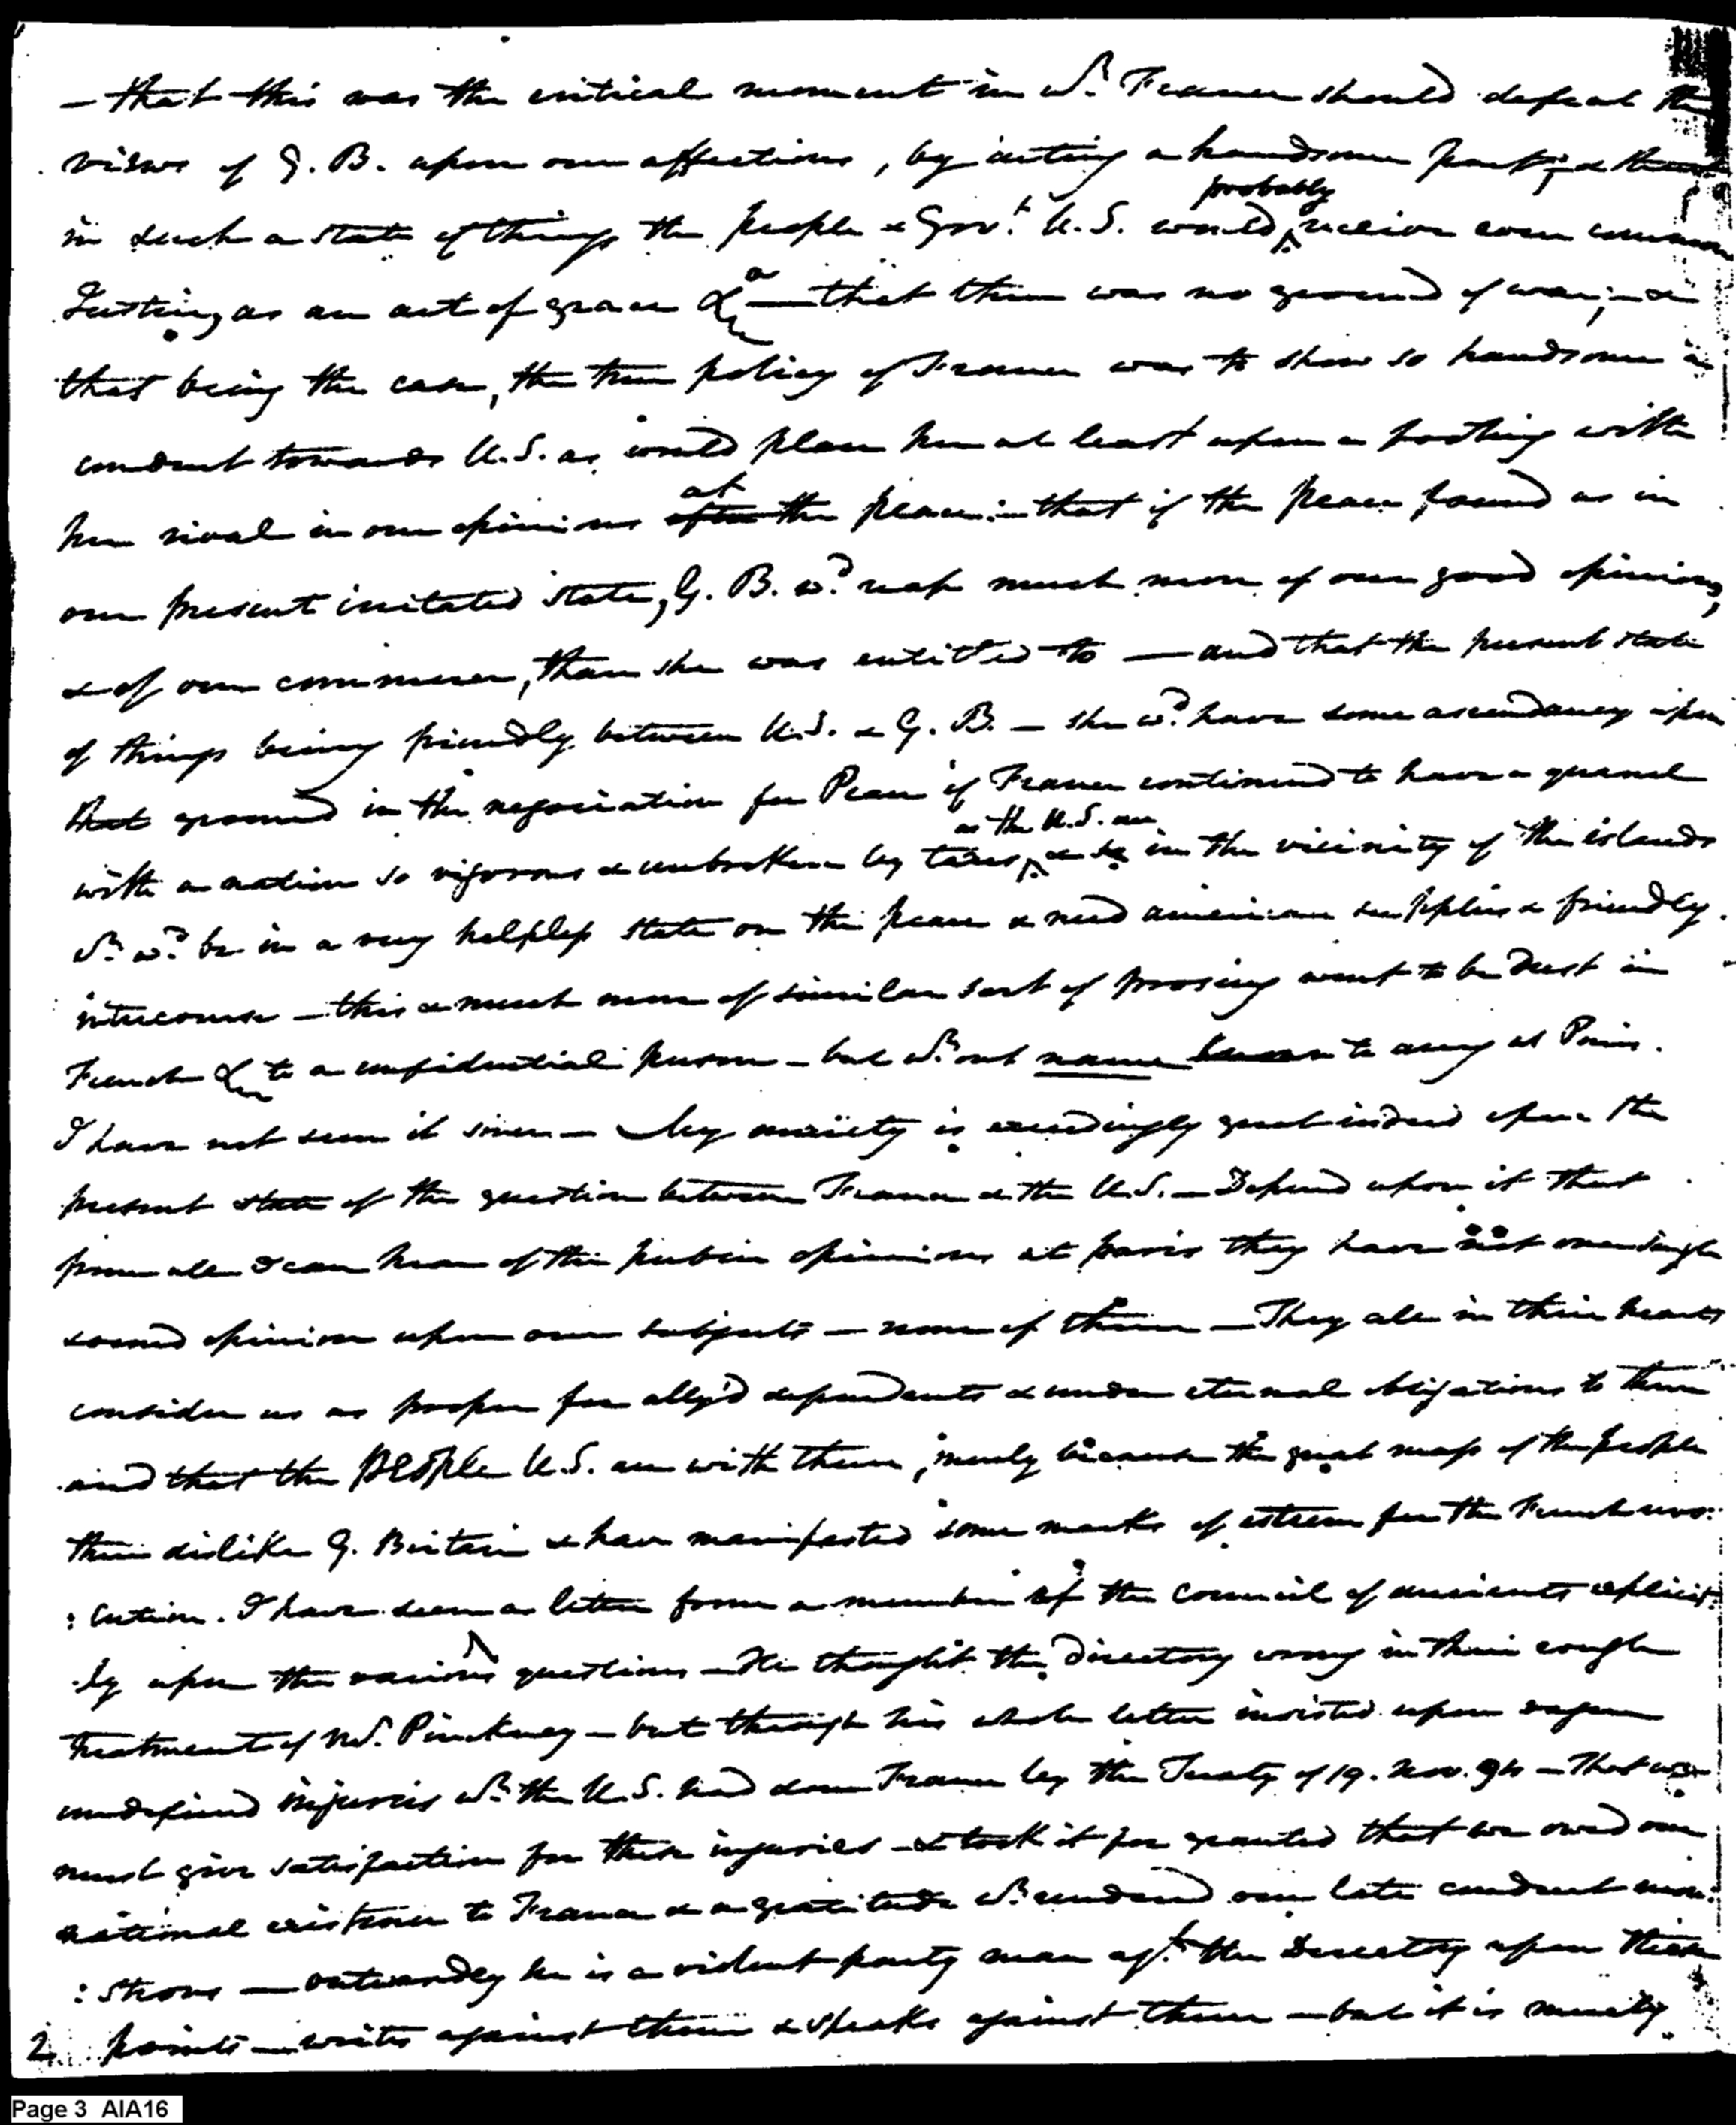 — that this was the critical moment in wh. France should defeat the
views of G. B. upon our affections, by acting a handsome part; & that
in such a state of things the people & Govt. U.S. would probably receive even common
Justice, as an act of grace &ca — that there was no ground of war; — &
that being the case, the true policy of France was to show so handsome a
conduct towards U.S. as would place her at least upon a footing with
her rival in our opinions after at the peace: — that if the peace found us in
our present irritated state, G. B. wd. reap much more of our good opinions,
& of our commerce, than she was entitled to — and that the present state
of things being friendly between U.S. & G. B. — she wd. have some ascendancy upon
that ground in the negociation for Peace if France continued to have a quarrel
with a nation so vigorous & unbroken by taxes, as the U.S. are & so in the vicinity of the islands
wh. wd. be in a very helpless state on the peace & need american supplies & friendly
intercourse — this & much more of similar sort of prosing went to be drest in
French & to a confidential person — but wh. out name known to any at Paris.
I have not seen it since — My anxiety is exceedingly great indeed upon the
present state of the question between France & the U.S. — Depend upon it that
from all I can hear of the public opinions at paris they have not one single
sound opinion upon our subjects — none of them — They all in their hearts
consider us as proper for ally'd dependents & under eternal obligations to them
and that the PEOPLE U.S. are with them, merely because the great mass of the people
there dislike G. Britain & have manifested some marks of esteem for the French revo:
:lution. I have seen a letter from a member of the Council of ancients explicit:
ly upon the various questions — He thought the Directory wrong in their rough
treatment of Mr. Pinckney — but through his whole letter insisted upon vague
undefined injuries wh. the U.S. had done France by the Treaty of 19. Nov. 94 — That we
must give satisfaction for these injuries — & took it for granted that we owed our
national existence to France & a gratitude wh. rendered our late conduct mon:
:strous — outwardly he is a violent party man agt. the Directory upon these
2. points — writes against them & speaks against them — but it is merely
Page 3 AIA16